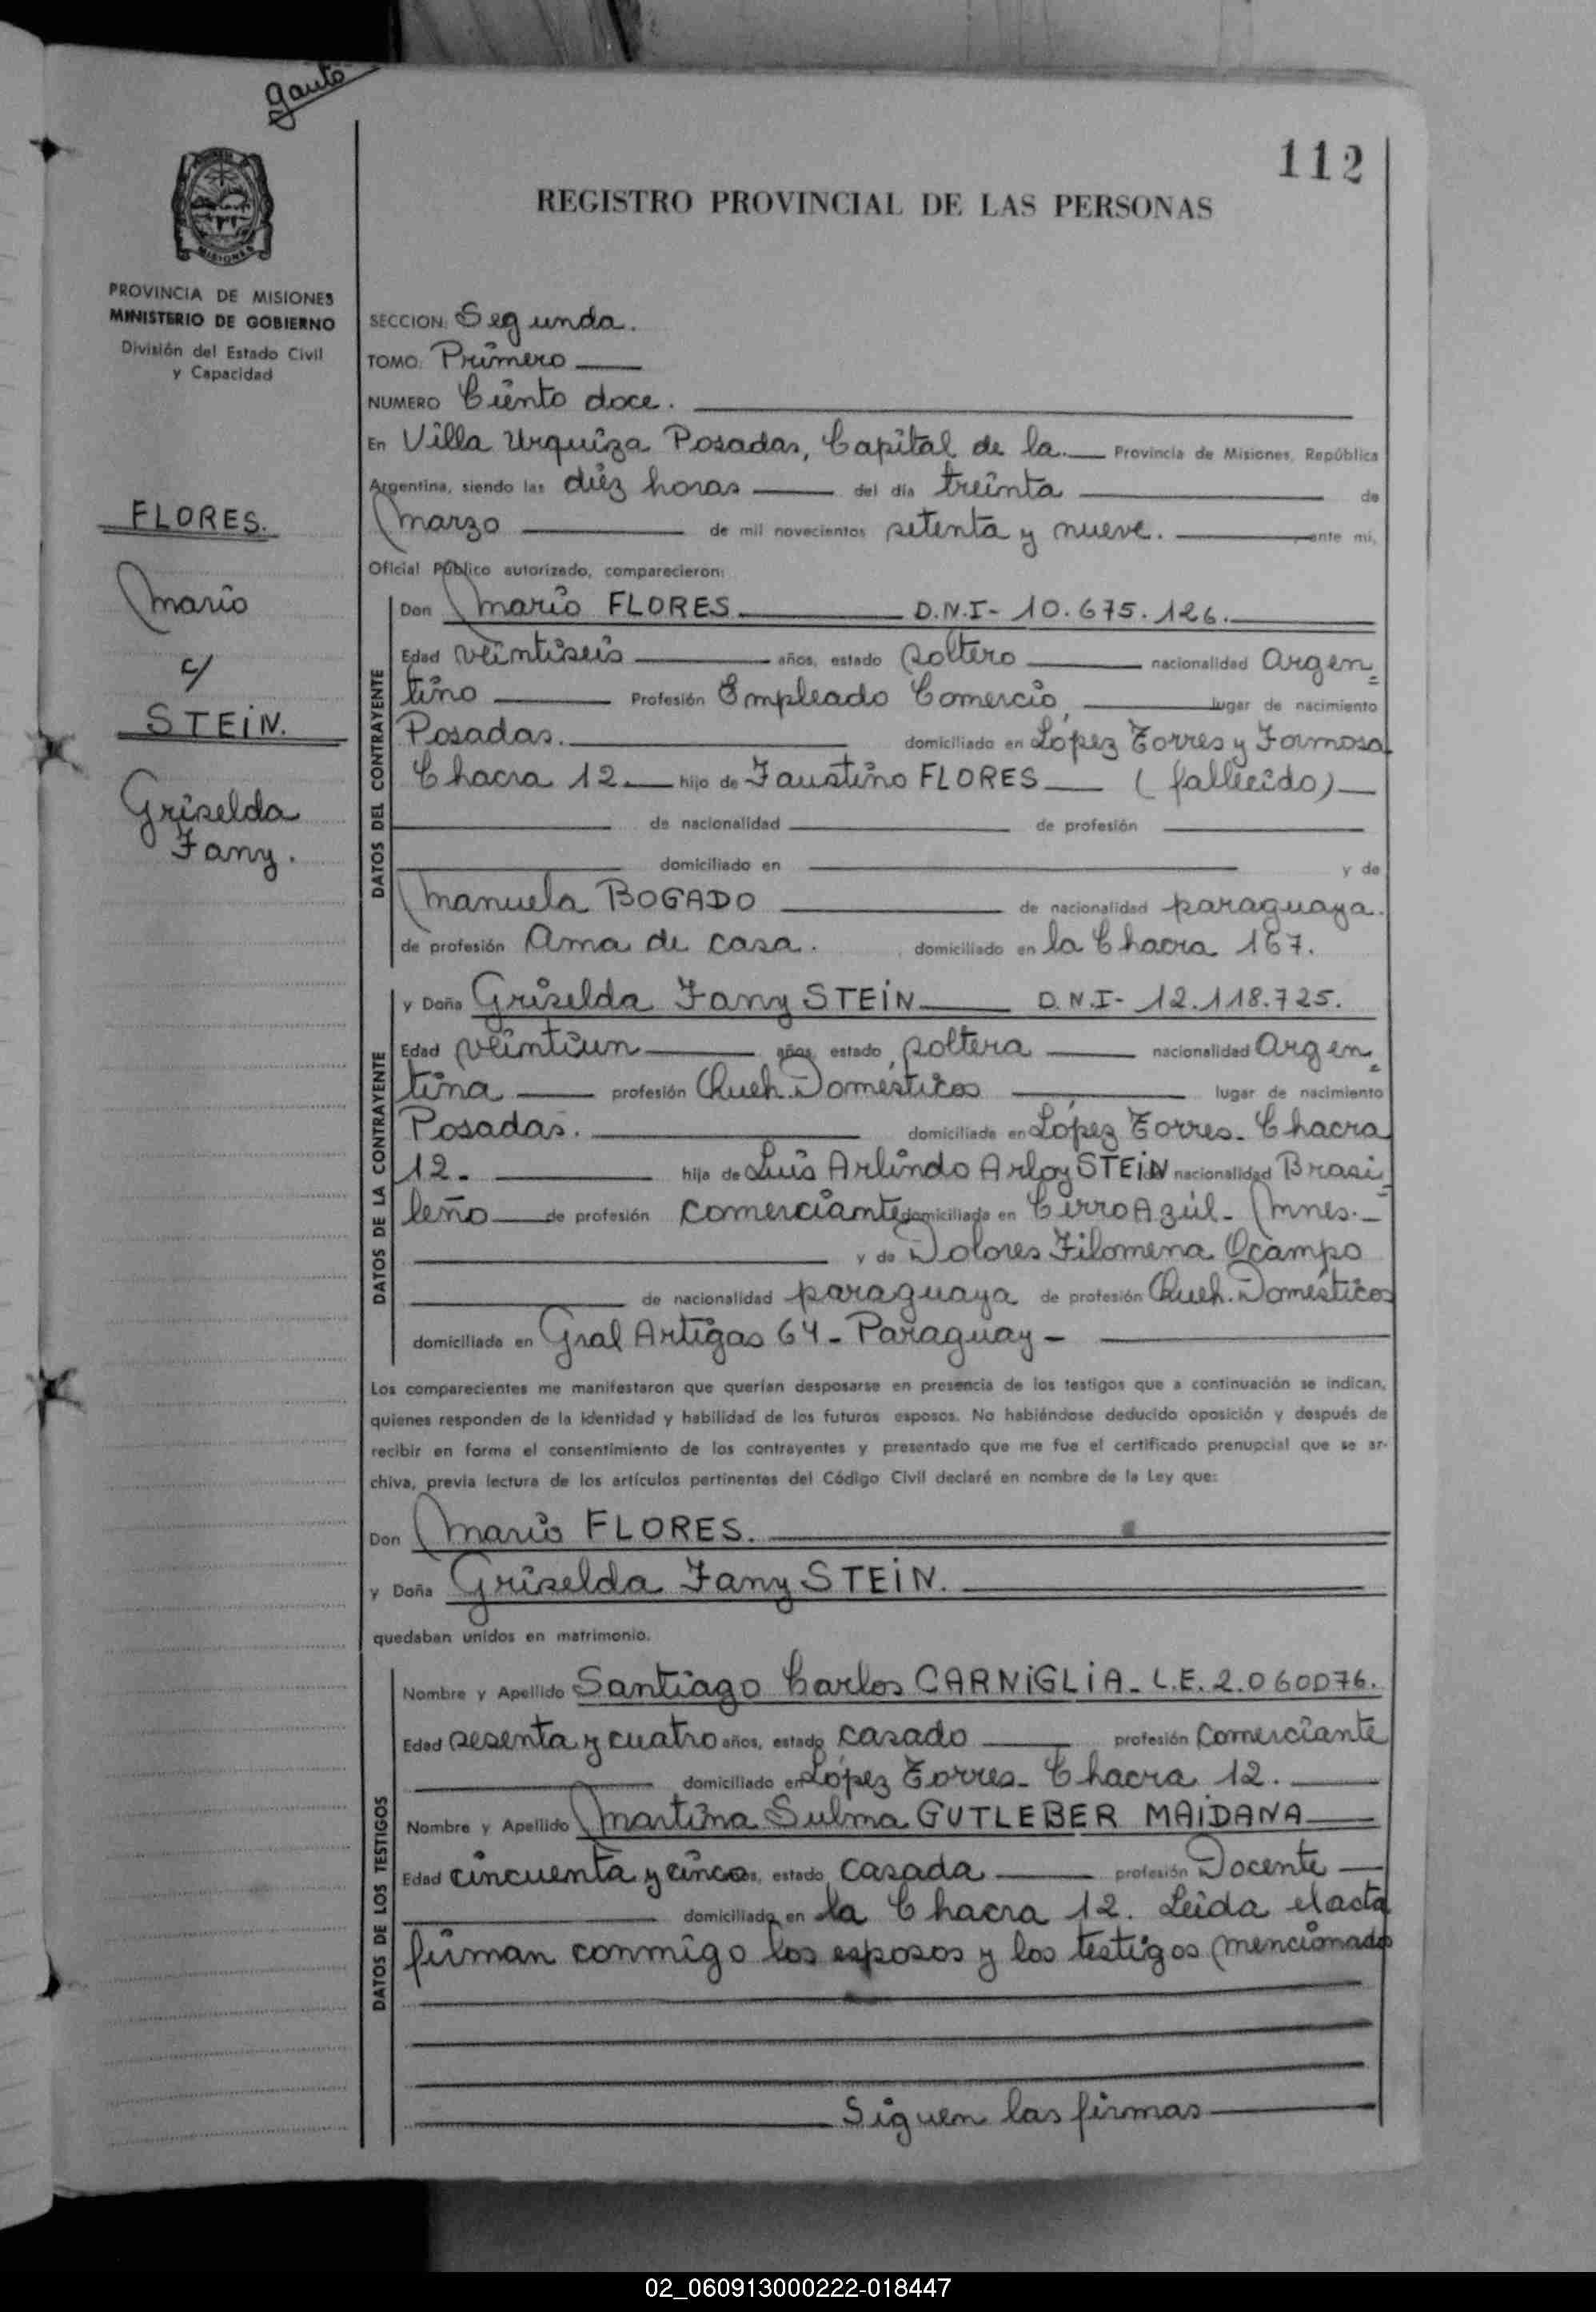 gauto
112
REGISTRO PROVINCIAL DE LAS PERSONAS
MISIONES
PROVINCIA DE MISIONES
MINISTERIO DE GOBIERNO
División del Estado Civil
y Capacidad
FLORES.
Mario
c/
STEIN.
Griselda
Fany.
SECCION: Segunda.
TOMO: Primero
NUMERO Ciento doce.
En Villa Urquiza Posadas, Capital de la. Provincia de Misiones, República
Argentina, siendo las diéz horas del día treinta de
Marzo de mil novecientos setenta y nueve. ante mí,
Oficial Público autorizado, comparecieron:
DATOS DEL CONTRAYENTE
Don Mario FLORES D.N.I- 10.675.126.
Edad veintiseis años, estado soltero nacionalidad Argen=
tino Profesión Empleado Comercio, lugar de nacimiento
Posadas. domiciliado en López Torres y Formosa
Chacra 12. hijo de Faustino FLORES (fallecido)
de nacionalidad de profesión
domiciliado en y de
Manuela BOGADO de nacionalidad paraguaya.
de profesión Ama de casa. domiciliado en la Chacra 167.
DATOS DE LA CONTRAYENTE
y Doña Griselda Fany STEIN D.N.I- 12.118.725.
Edad veintiun años, estado, soltera nacionalidad Argen=
tina profesión Queh. Domésticos lugar de nacimiento
Posadas. domiciliada en López Torres- Chacra
12. hija de Luis Arlindo Arloy STEIN nacionalidad Brasi=
leño de profesión comerciante domiciliado en Cerro Azúl- Mnes.-
y de Dolores Filomena Ocampo
de nacionalidad paraguaya de profesión Queh. Domésticos
domiciliada en Gral Artigas 64- Paraguay-
Los comparecientes me manifestaron que querían desposarse en presencia de los testigos que a continuación se indican,
quienes responden de la identidad y habilidad de los futuros esposos. No habiéndose deducido oposición y después de
recibir en forma el consentimiento de los contrayentes y presentado que me fue el certificado prenupcial que se ar-
chiva, previa lectura de los artículos pertinentes del Código Civil declaré en nombre de la Ley que:
Don Mario FLORES.
y Doña Griselda Fany STEIN.
quedaban unidos en matrimonio.
DATOS DE LOS TESTIGOS
Nombre y Apellido Santiago Carlos CARNIGLIA- L.E. 2.060076.
Edad sesenta y cuatro años, estado casado profesión Comerciante
domiciliado en López Torres- Chacra 12.
Nombre y Apellido Martina Sulma GUTLEBER MAIDANA
Edad cincuenta y cinco años, estado casada profesión Docente
domiciliado en la Chacra 12. Leida el acta
firman conmigo los esposos y los testigos mencionados
Siguen las firmas
02_060913000222-018447